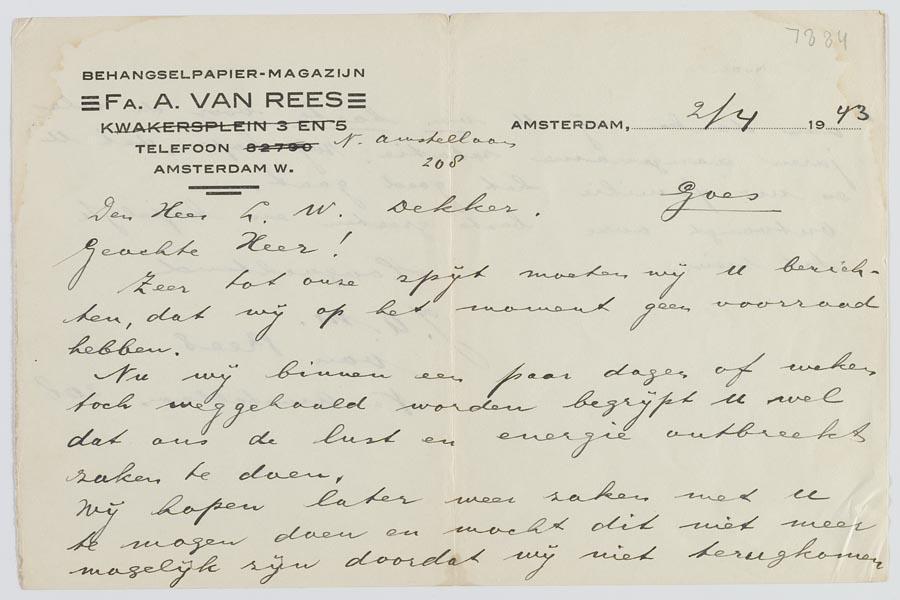 7884
BEHANGSELPAPIER-MAGAZIJN
FA. A. VAN REES
KWAKERSPLEIN 3 EN 5
TELEFOON 82790 N. Amstellaan
AMSTERDAM W. 208
AMSTERDAM, 2/4 19 43
Den Heer L. W. Dekker. Goes
Geachte Heer!
Zeer tot onze spijt moeten wij U berich-
ten, dat wij op het moment geen voorraad
hebben.
Nu wij binnen een paar dagen of weken
toch weggehaald worden begrijpt U wel
dat ons de lust en energie ontbreekt
zaken te doen.
Wij hopen later weer zaken met U
te mogen doen en mocht dit niet meer
mogelijk zijn doordat wij niet terugkomen